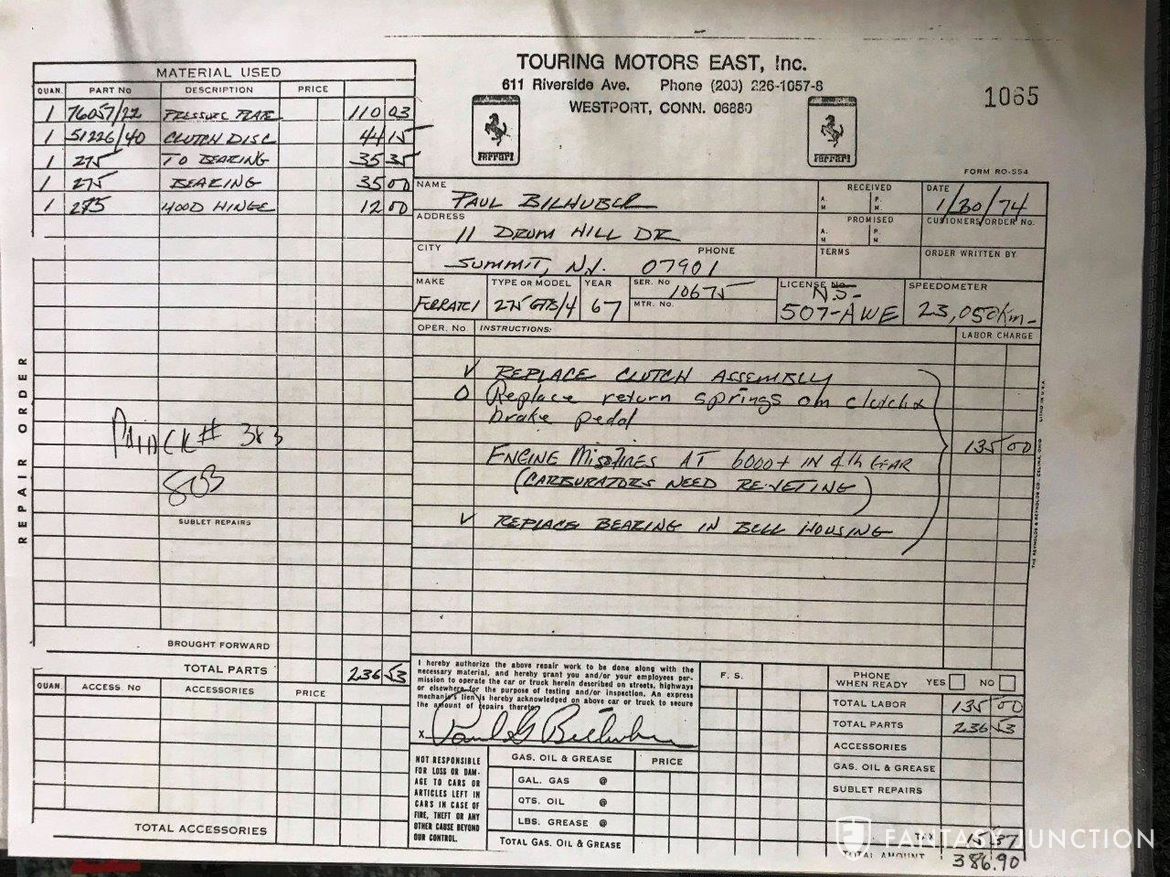 TOURING MOTORS EAST, Inc.
611 Riverside Ave. Phone (203) 226-1057-8
WESTPORT, CONN. 06880
1065
Ferrari
Ferrari
FORM RO-554
MATERIAL USED
QUAN. PART No DESCRIPTION PRICE
1 76057/22 PRESSURE PLATE 110 03
1 51226/40 CLUTCH DISC 44 15
1 275 TO BEARING 35 35
1 275 BEARING 35 00
1 275 HOOD HINGE 12 00
REPAIR ORDER
PAID CK# 383
SUBLET REPAIRS
BROUGHT FORWARD
TOTAL PARTS 236 53
QUAN. ACCESS. No ACCESSORIES PRICE
TOTAL ACCESSORIES
NAME PAUL BILHUBER
RECEIVED A. M P. M
DATE 1/30/74
ADDRESS 11 DRUM HILL DR
PROMISED A. M P. M
CUSTOMERS ORDER No.
CITY SUMMIT, NJ. 07901 PHONE
TERMS
ORDER WRITTEN BY
MAKE FERRARI
TYPE OR MODEL 275 GTB/4
YEAR 67
SER. No 10675
MTR. No.
LICENSE No. NJ-
507-AWE
SPEEDOMETER 23,050 Km-
OPER. No. INSTRUCTIONS: LABOR CHARGE
REPLACE CLUTCH ASSEMBLY
Replace return springs on clutch &
brake pedal
135 00
ENGINE MISFIRES AT 6000+ IN 4th GEAR
(CARBURATORS NEED RE-JETING)
REPLACE BEARING IN BELL HOUSING
LITHO IN U.S.A.
THE REYNOLDS & REYNOLDS CO., CELINA, OHIO
I hereby authorize the above repair work to be done along with the
necessary material, and hereby grant you and/or your employees per-
mission to operate the car or truck herein described on streets, highways
or elsewhere for the purpose of testing and/or inspection. An express
mechanic's lien is hereby acknowledged on above car or truck to secure
the amount of repairs thereto.
X Paul G Bilhuber
NOT RESPONSIBLE
FOR LOSS OR DAM-
AGE TO CARS OR
ARTICLES LEFT IN
CARS IN CASE OF
FIRE, THEFT OR ANY
OTHER CAUSE BEYOND
OUR CONTROL.
GAS. OIL & GREASE PRICE
GAL. GAS @
QTS. OIL @
LBS. GREASE @
TOTAL GAS. OIL & GREASE
F. S.
PHONE WHEN READY YES NO
TOTAL LABOR 135 00
TOTAL PARTS 236 53
ACCESSORIES
GAS. OIL & GREASE
SUBLET REPAIRS
TAX 15 37
TOTAL AMOUNT 386.90
FANTASY JUNCTION